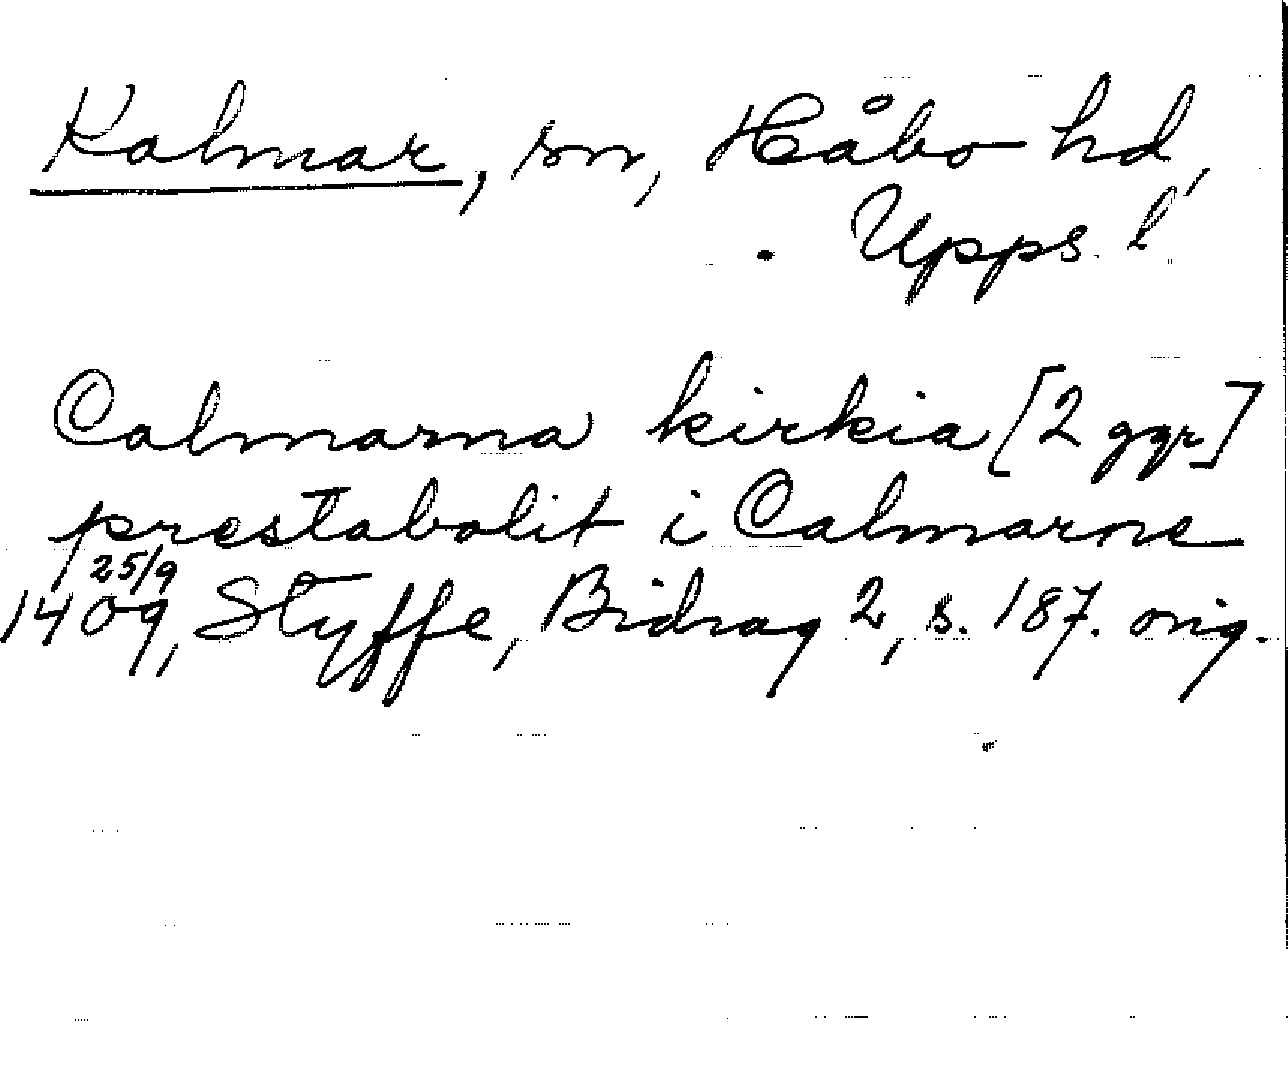 Kalmar, sn, Håbo hd,
Upps. l
Calmarna kirkia [2 ggr]
prestabolit i Calmarne
25/9
1409, Styffe, Bidrag 2, s. 187. orig.